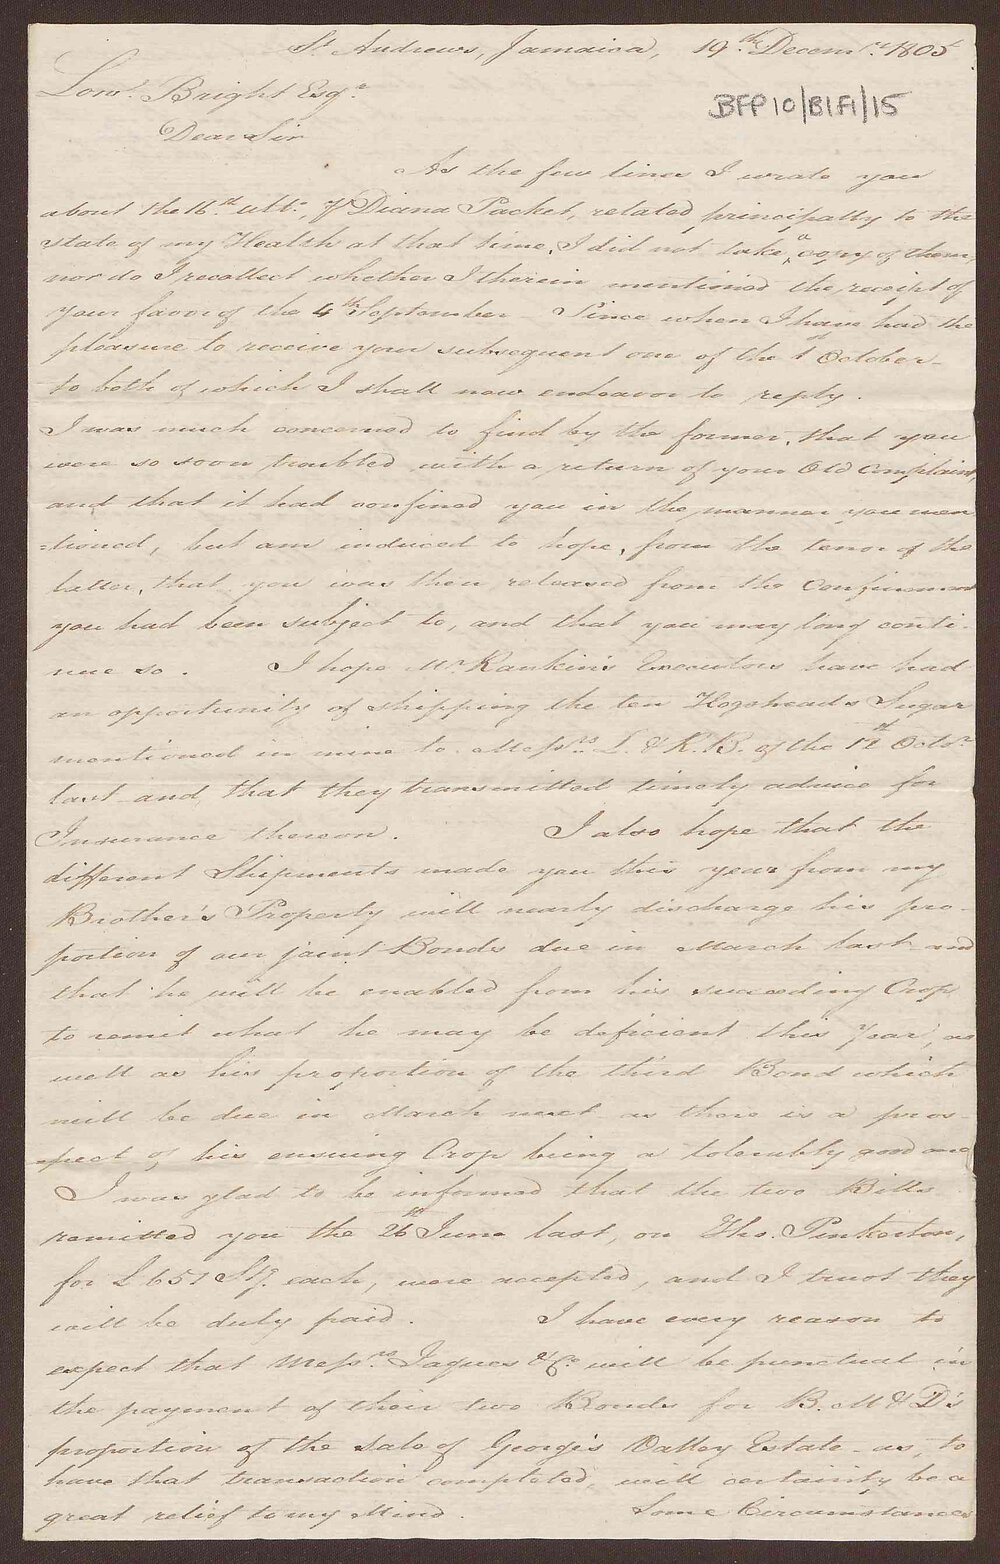 St. Andrews, Jamaica, 19th Decemr. 1805
Lowl. Bright Esqr.
BFP10/B1F1/15
Dear Sir
As the few lines I wrote you
about the 16th ulto., Diana Packet, related principally to the
state of my Health at that time, I did not take a copy of them,
nor do I recollect whether I therein mentioned the receipt of
your favor of the 4th September - Since when I have had the
pleasure to receive your subsequent one of the 1 October -
to both of which I shall now endeavor to reply.
I was much concerned to find by the former, that you
were so soon troubled with a return of your Old Complaint,
and that it had confined you in the manner you men
=tioned, but am induced to hope, from the tenor of the
latter, that you was then released from the Confinement
you had been subject to, and that you may long conti-
nue so. I hope Mr. Rankin's Executors have had
an opportunity of shipping the ten Hogsheads Sugar
mentioned in mine to Messrs. L & R. B. of the 12th Octor.
last and that they transmitted timely advice for
Insurance thereon. I also hope that the
different Shipments made you this year from my
Brother's Property will nearly discharge his pro-
portion of our joint Bonds due in March last and
that he will be enabled from his succeeding Crop
to remit what he may be deficient this Year, as
well as his proportion of the third Bond which
will be due in March next as there is a pros-
pect of his ensuing Crop being a tolerably good one
I was glad to be informed that the two Bills
remitted you the 26th June last, on Thos. Pinkerton,
for £651 Stg. each, were accepted, and I trust they
will be duly paid. I have every reason to
expect that Messrs. Jaques & Co. will be punctual in
the payment of their two Bonds for B. M & D's
proportion of the sale of George's Valley Estate - as, to
have that transaction completed, will certainly be a
great relief to my Mind. Some Circumstances